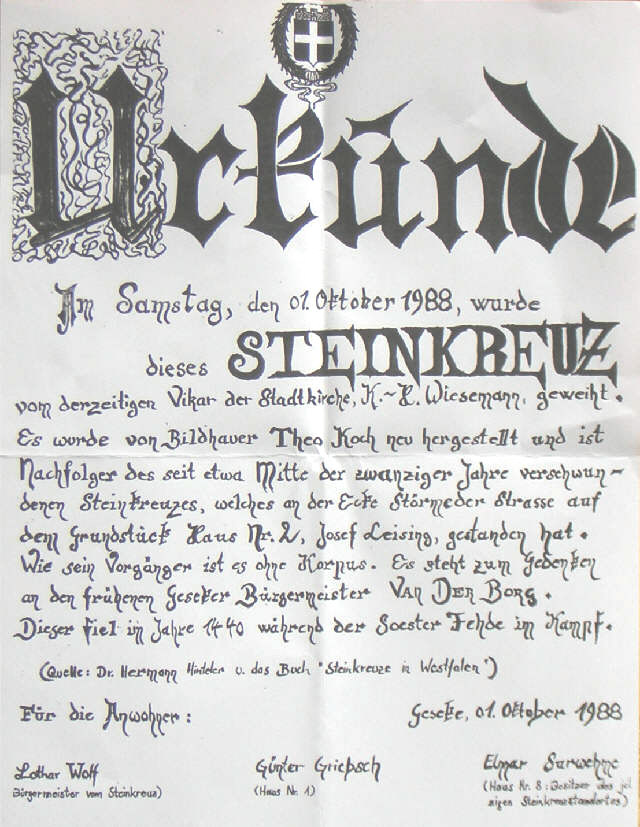 Urkünde
Am Samstag, den 01. Oktober 1988, wurde
dieses STEINKREUZ
vom derzeitigen Vikar der Stadtkirche, K.-H. Wiesemann, geweiht.
Es wurde von Bildhauer Theo Koch neu hergestellt und ist
Nachfolger des seit etwa Mitte der zwanziger Jahre verschwun-
denen Steinkreuzes, welches an der Ecke Störmeder Strasse auf
dem Grundstück Haus Nr. 2, Josef Leising, gestanden hat.
Wie sein Vorgänger ist es ohne Korpus. Es steht zum Gedenken
an den früheren Geseker Bürgermeister VAN DER BORG.
Dieser fiel im Jahre 1440 während der Soester Fehde im Kampf.
(Quelle: Dr. Hermann u. das Buch "Steinkreuze in Westfalen")
Für die Anwohner: Geseke, 01. Oktober 1988
Lothar Wolf Günter Griepsch Elmar Sarwehme
(Bürgermeister vom Steinkreuz) (Haus Nr. 1) (Haus Nr. 8: Besitzer des jet
zigen Steinkreuzstandortes)